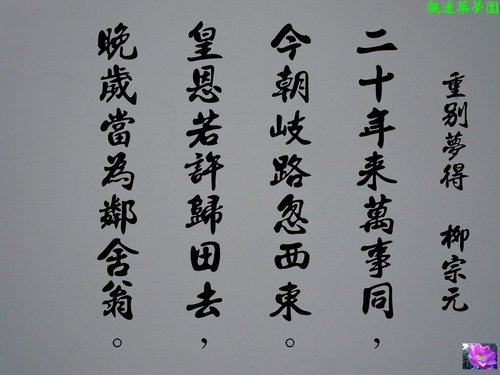 楓逸築夢園
重別夢得　柳宗元
二十年来萬事同，
今朝岐路忽西東。
皇恩若許歸田去，
晚歲當為鄰舍翁。